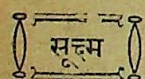 सूक्ष्म